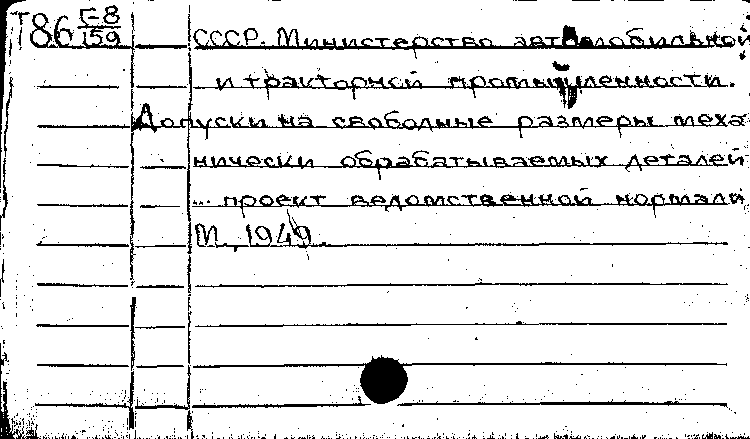 Т86 Е-8/159 СССР. Министерство автомобильной
и тракторной промышленности.
Допуски на свободные размеры меха-
нически обрабатываемых деталей
... проект ведомственной нормали
М., 1949.